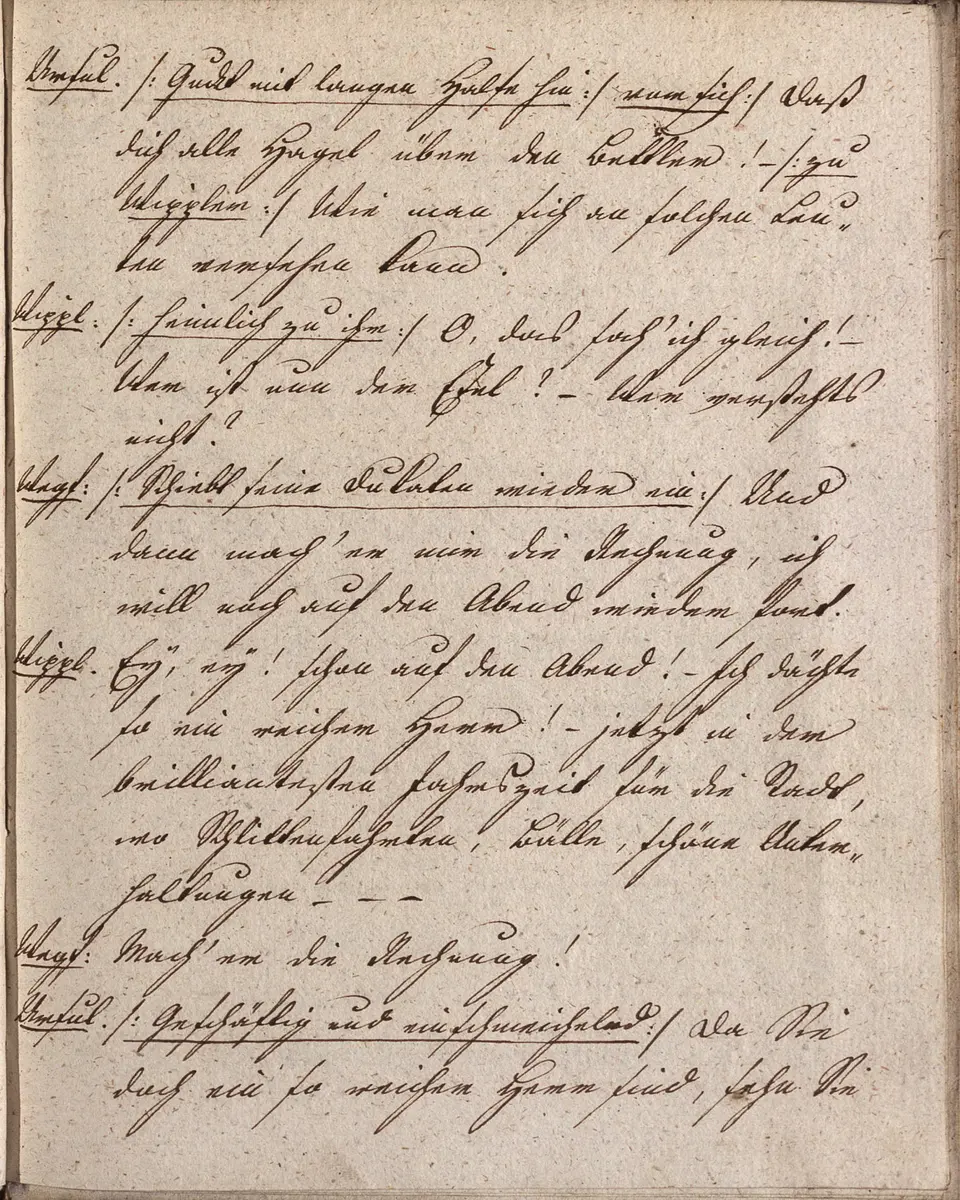 Ursul. /: Guckt mit langen Halse hin :/ vor sich :/ Daß
dich alle Hagel über den Bettler! – /: zu
Wippler :/ Wie man sich an solchen Leu„
ten versehen kann.
Wippl: /: heimlich zu ihr :/ O, das sah' ich gleich! –
Wer ist nun der Esel? – Wer verstehts
nicht?
Wegf: /: Schiebt seine Dukaten wieder ein :/ Und
dann mach' er mir die Rechnung, ich
will noch auf den Abend wieder fort.
Wippl. Eÿ, eÿ! schon auf den Abend! – Ich dächte
so ein reicher Herr! – jetzt in der
brilliantesten Jahrszeit für die Stadt,
wo Schlittenfahrten, Bälle, schöne Unter„
haltungen – – –
Wegf: Mach' er die Rechnung!
Ursul. /: Geschäftig und einschmeichelnd :/ Da Sie
doch ein so reicher Herr sind, sehn Sie